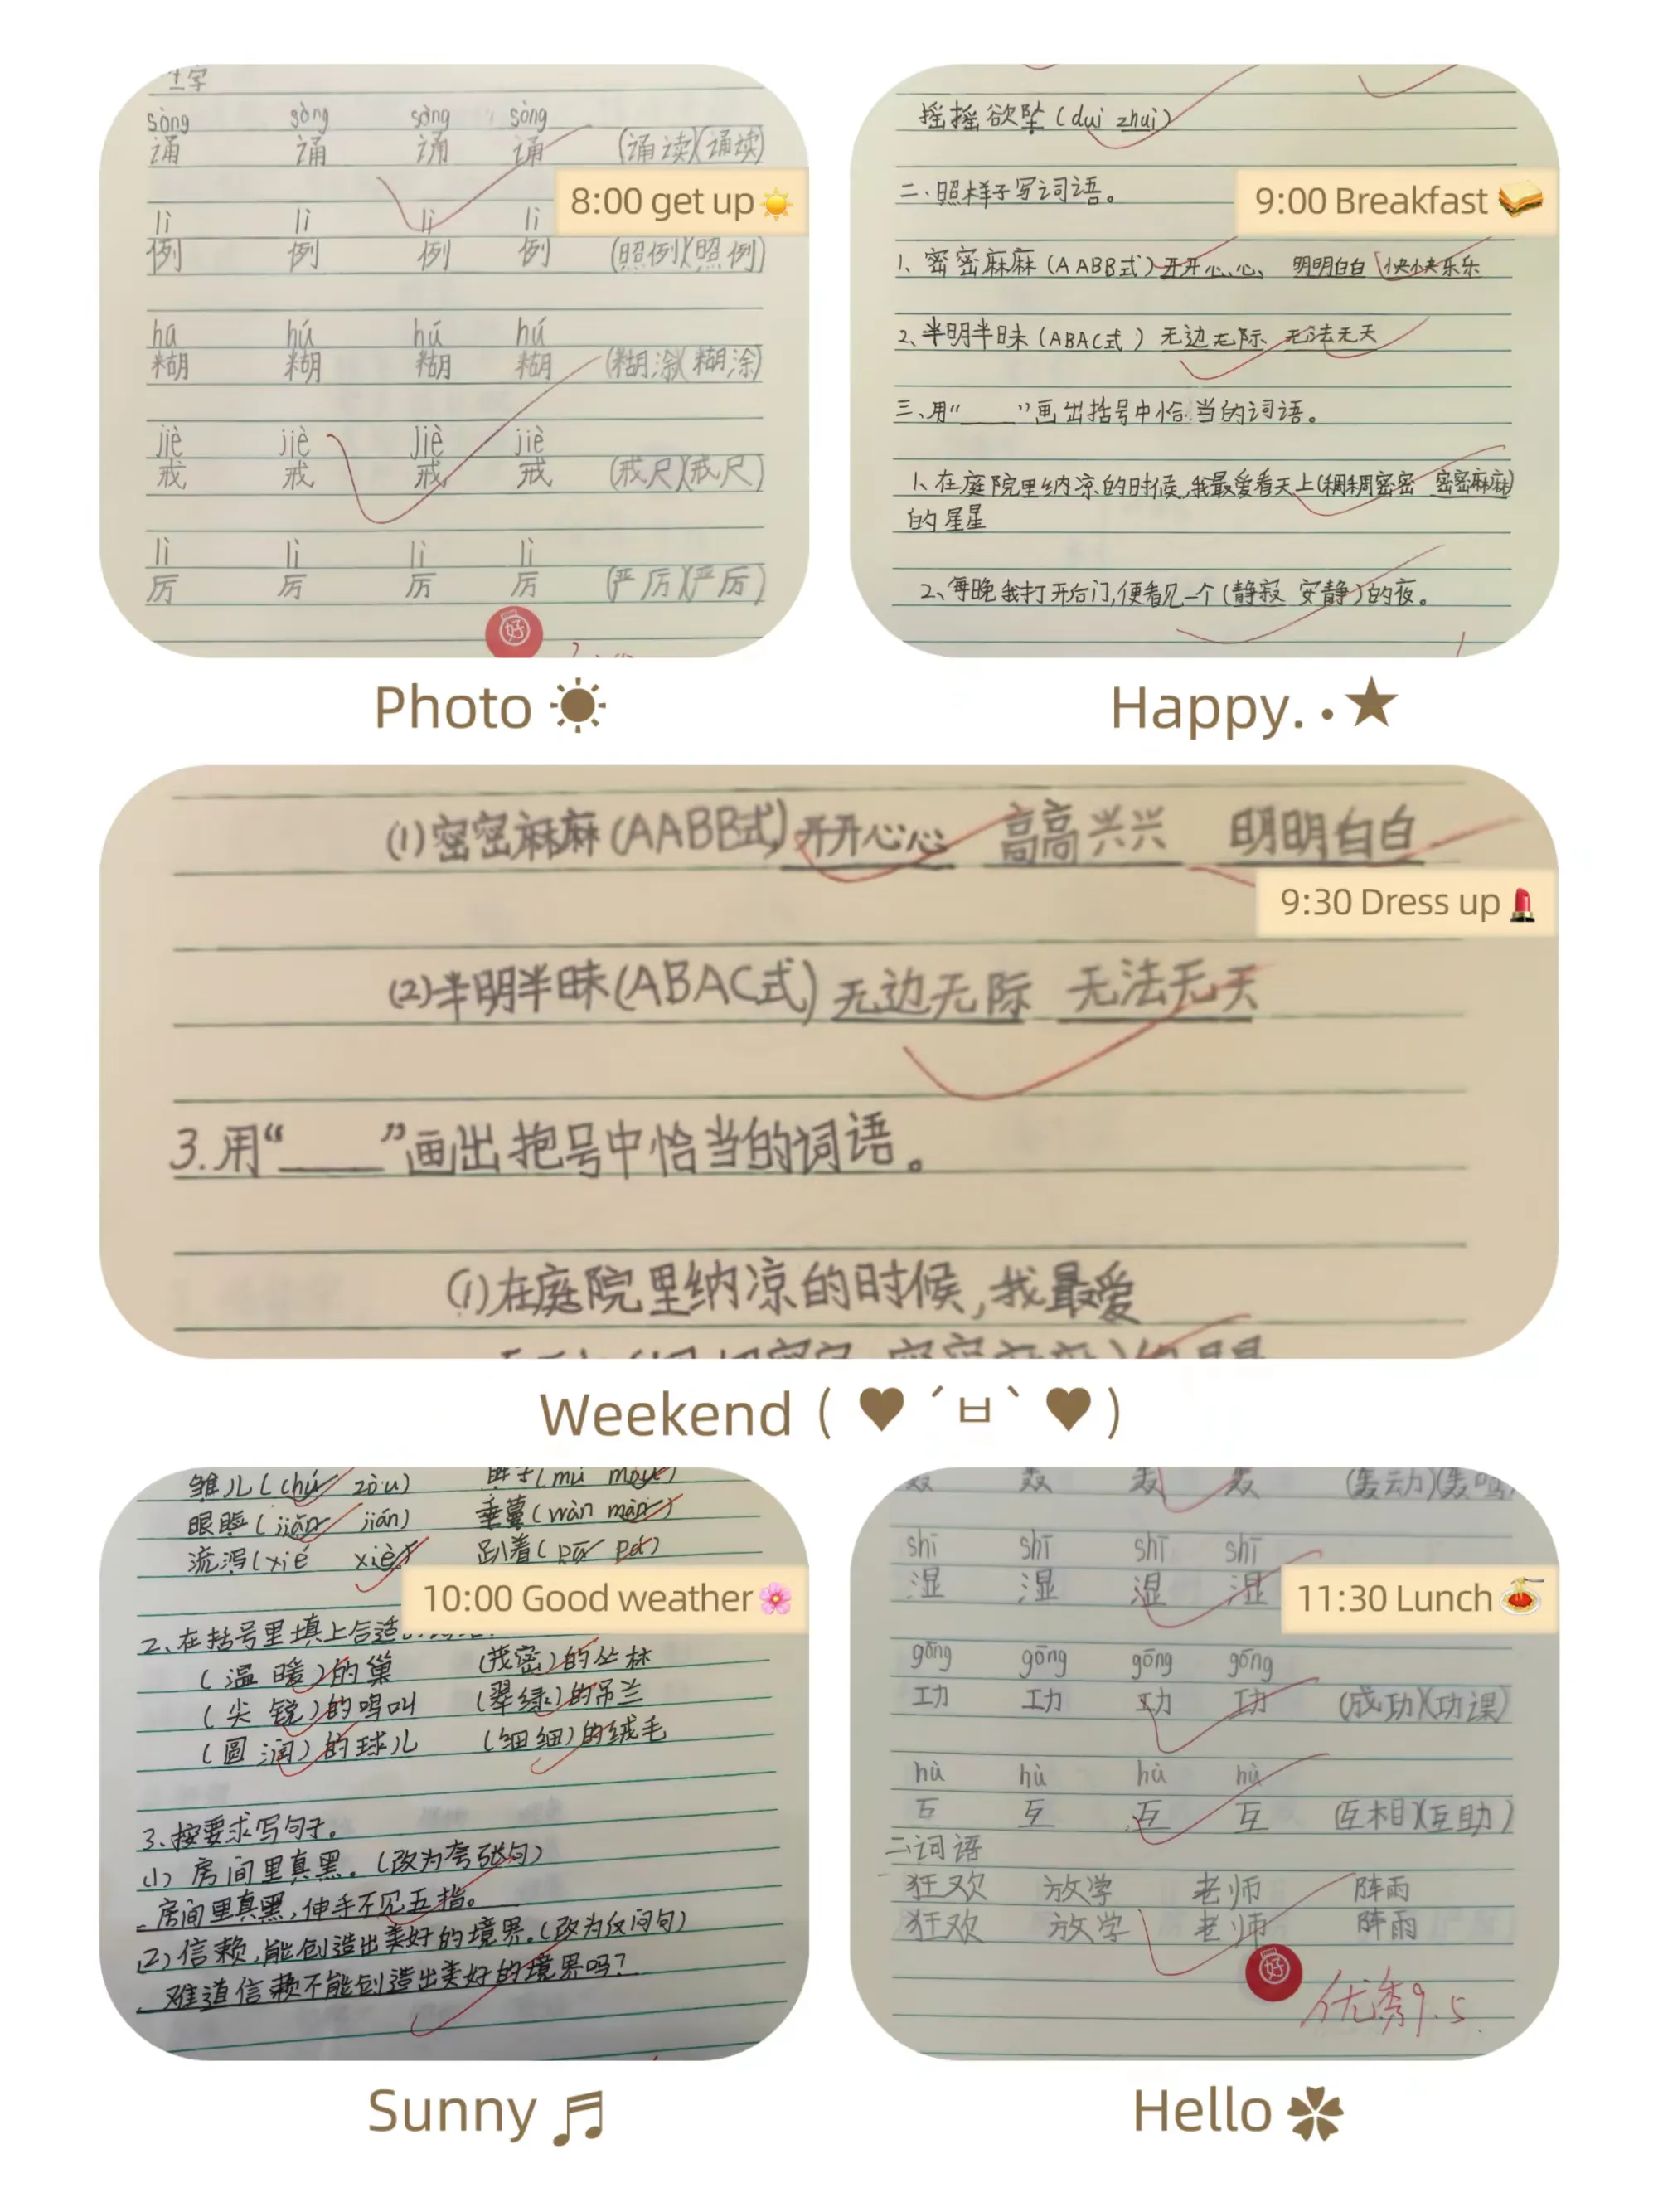 生字
sòng sòng sòng sòng
诵 诵 诵 诵 (诵读)(诵读)
8:00 get up
lì lì lì lì
例 例 例 例 (照例)(照例)
hú hú hú
糊 糊 糊 糊 (糊涂)(糊涂)
jiè jiè jiè jiè
戒 戒 戒 戒 (戒尺)(戒尺)
lì lì lì lì
厉 厉 厉 厉 (严厉)(严厉)
好
Photo
摇摇欲坠(duì zhuì)
二、照样子写词语。
9:00 Breakfast
1、密密麻麻(AABB式)开开心心、 明明白白 快快乐乐
2、半明半昧(ABAC式) 无边无际 无法无天
三、用“____”画出括号中恰当的词语。
1、在庭院里纳凉的时候,我最爱看天上(稠稠密密 密密麻麻)
的星星
2、每晚我打开后门,便看见一个(静寂 安静)的夜。
Happy.
(1)密密麻麻(AABB式)开开心心 高高兴兴 明明白白
9:30 Dress up
(2)半明半昧(ABAC式)无边无际 无法无天
3.用“____”画出抱号中恰当的词语。
(1)在庭院里纳凉的时候,我最爱
Weekend ( ♥ ´ㅂ` ♥ )
雏儿(chú zòu)
眼睑(jiǎn jián) 垂蔓(wàn màn)
流泻(xié xiè) 趴着(pā pá)
10:00 Good weather
2、在括号里填上合适
(温暖)的巢 (茂密)的丛林
(尖锐)的鸣叫 (翠绿)的吊兰
(圆润)的球儿 (细细)的绒毛
3、按要求写句子。
(1) 房间里真黑。(改为夸张句)
房间里真黑,伸手不见五指。
(2)信赖,能创造出美好的境界。(改为反问句)
难道信赖不能创造出美好的境界吗?
Sunny
轰 轰 轰 轰 (轰动)(轰鸣)
shī shī shī shī
湿 湿 湿 湿
11:30 Lunch
gōng gōng gōng gōng
功 功 功 功 (成功)(功课)
hù hù hù hù
互 互 互 互 (互相)(互助)
二词语
狂欢 放学 老师 阵雨
狂欢 放学 老师 阵雨
好
优秀9.5
Hello